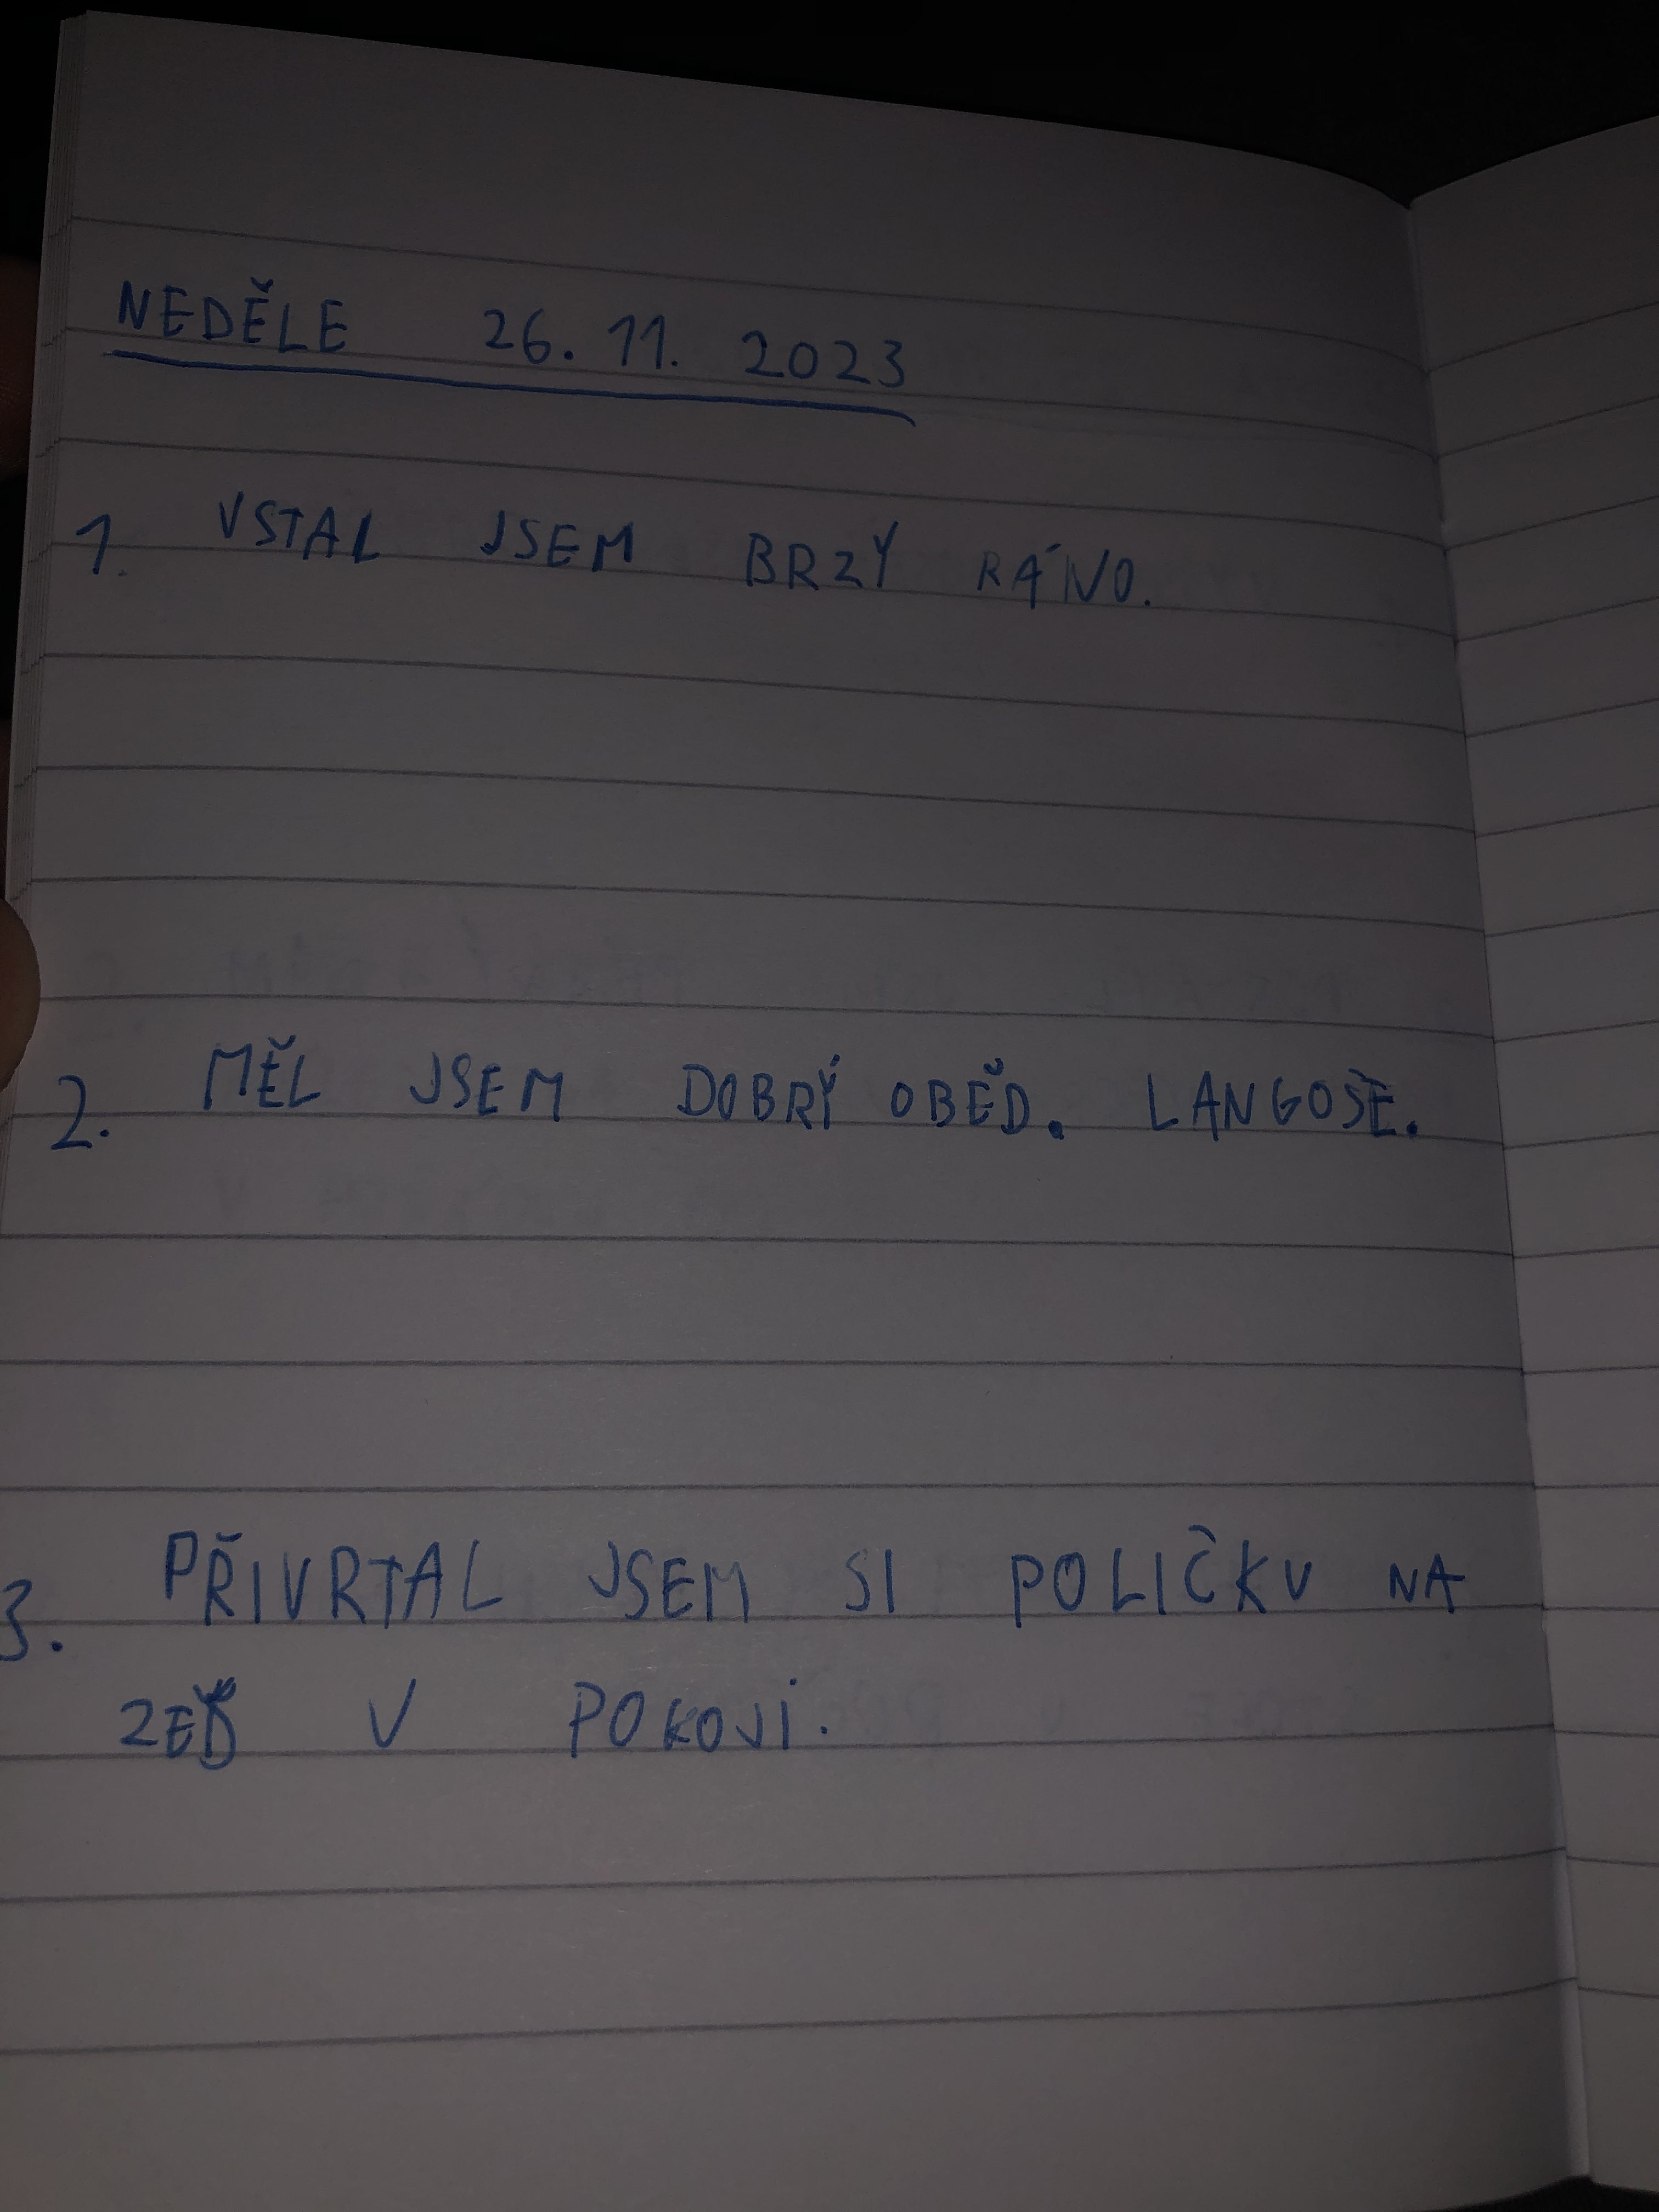 NEDĚLE 26. 11. 2023
1. VSTAL JSEM BRZY RÁNO.
2. MĚL JSEM DOBRÝ OBĚD. LANGOŠE.
3. PŘIVRTAL JSEM SI POLIČKU NA
ZEĎ V POKOJI.